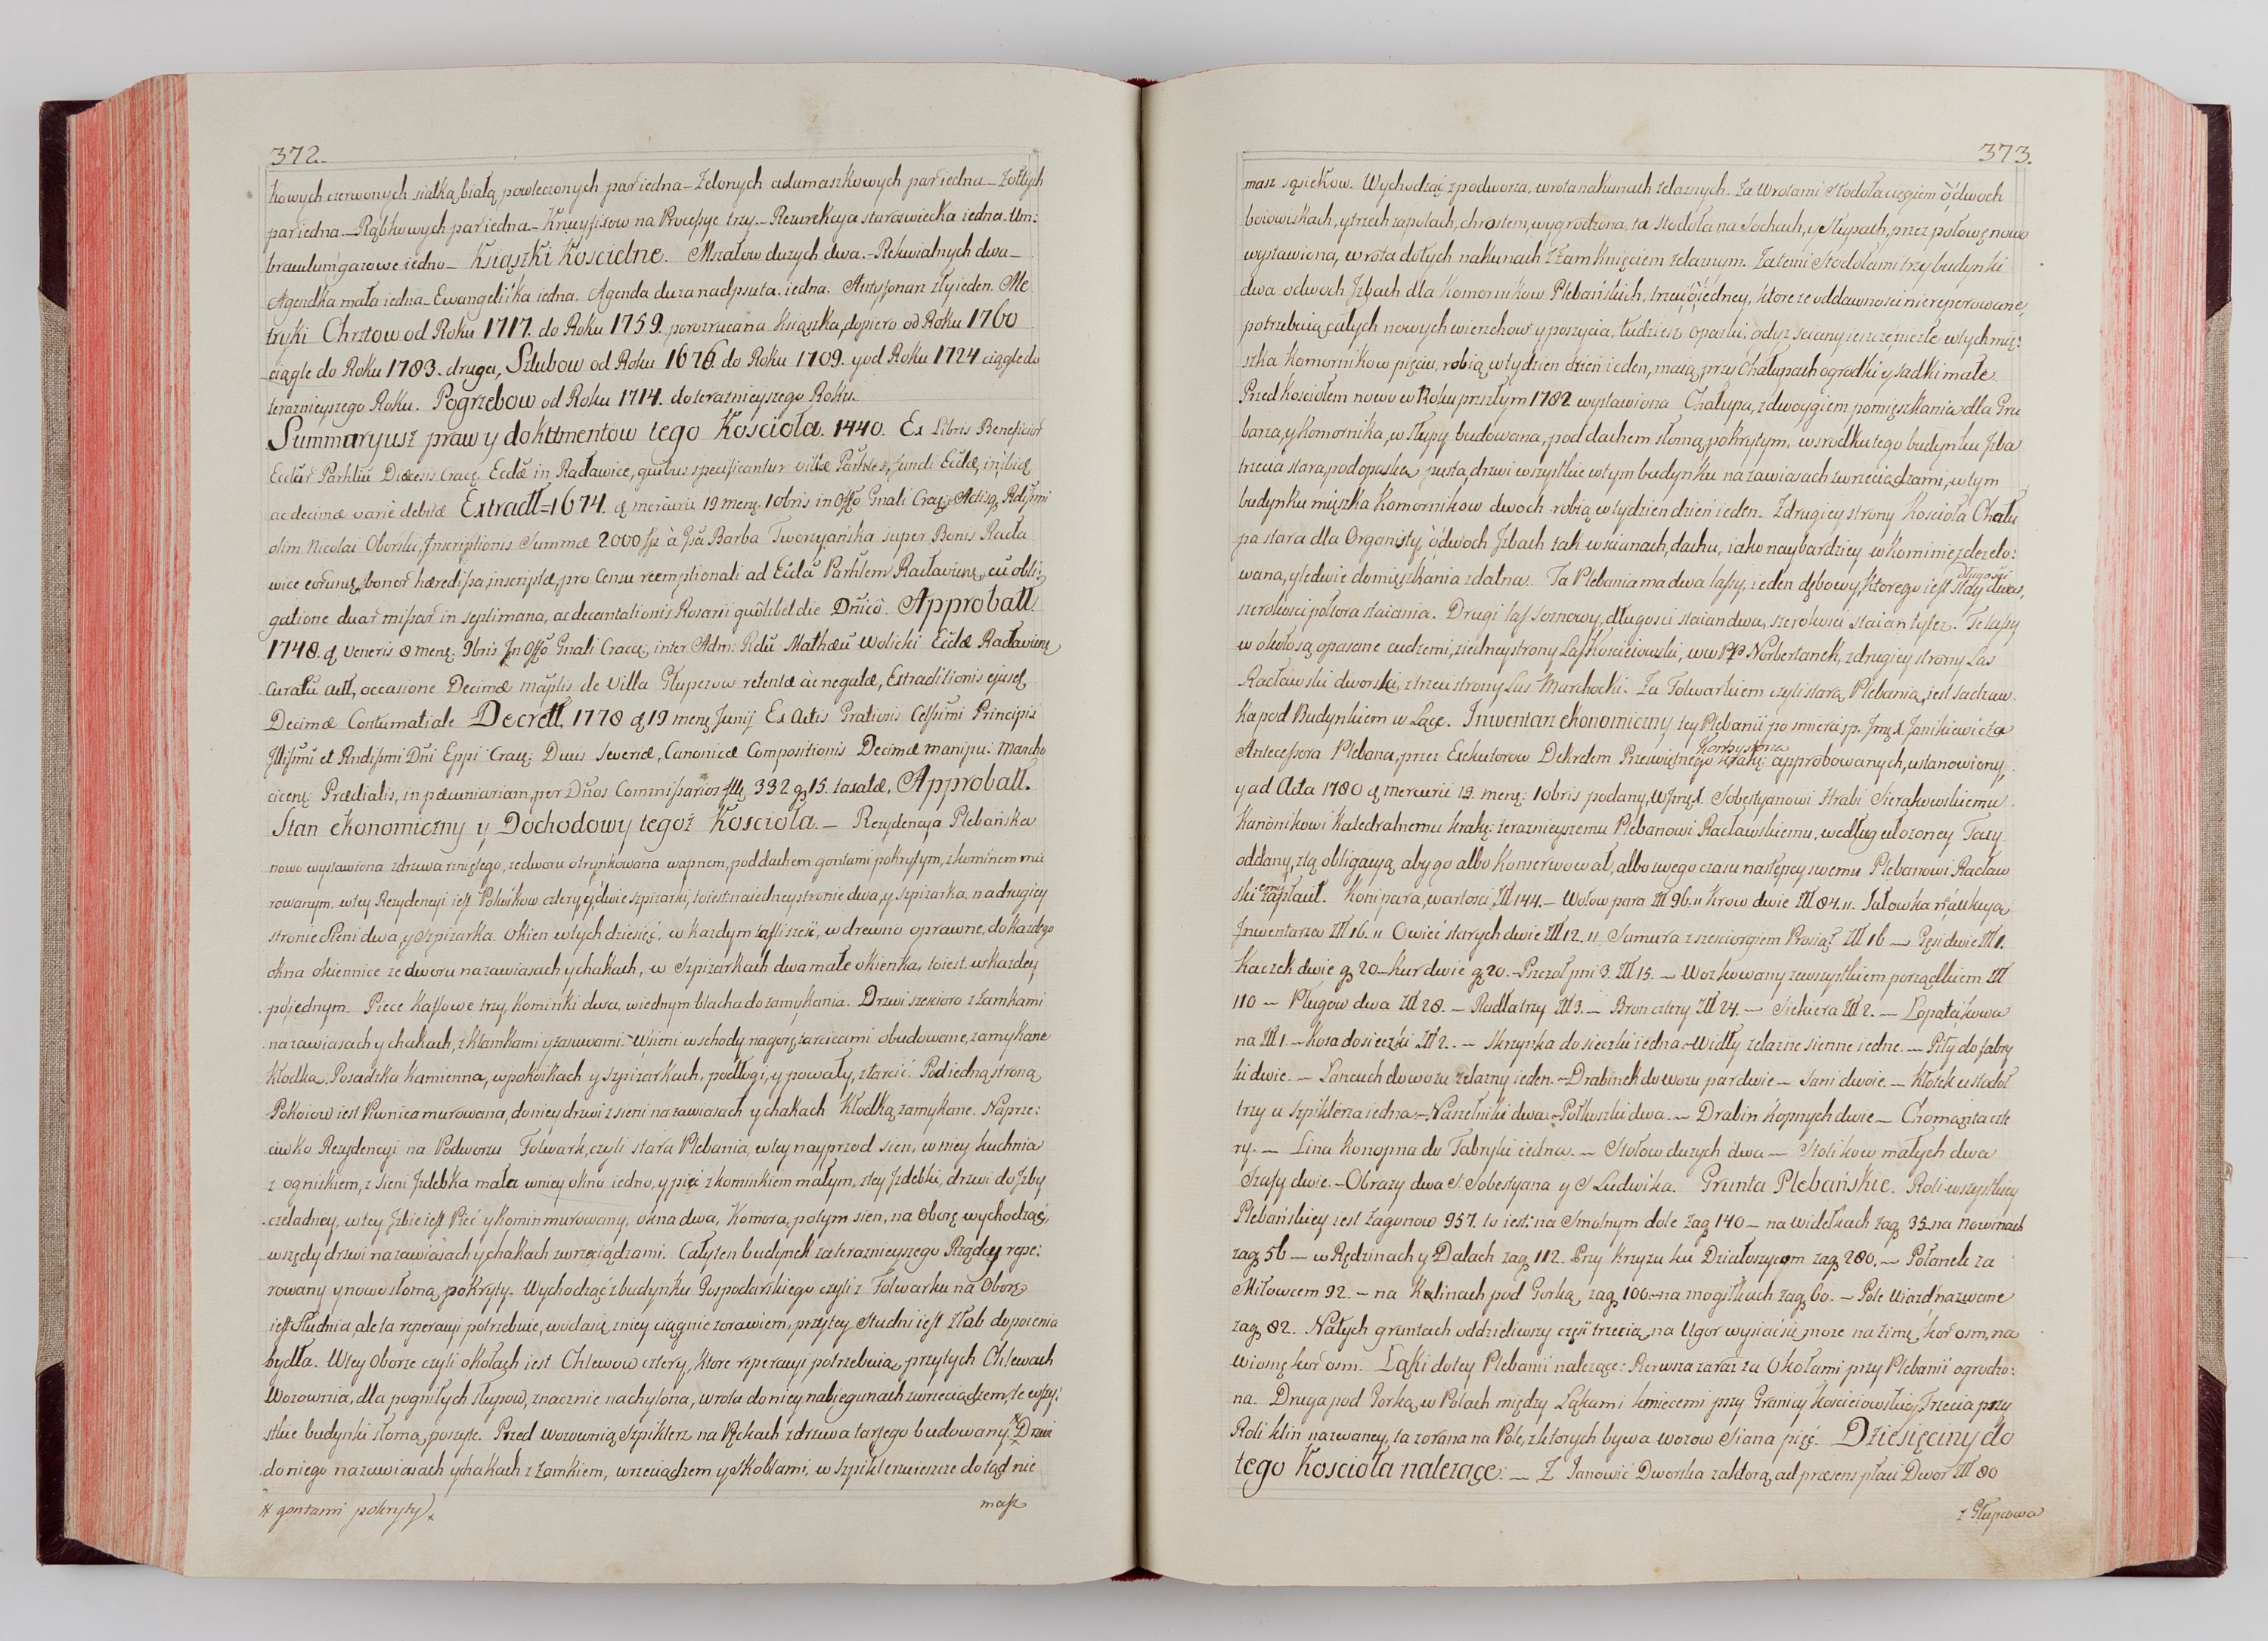 372.
kowych czerwonych siatką białą powleczonych par iedna – Zelonych adamaszkowych par iedna – Zołtych
par iedna – Rąbkowych par iedna – Krucyfixow na Processye trzy – Rezurekcya staroswiecka iedna. Um:
braculum gazowe iedno – Ksiąszki Koscielne. Mszałow duzych dwa – Rekwialnych dwa –
Agendka mała iedna – Ewangeliika iedna. Agenda duza nadpsuta iedna. Antyfonarz zły ieden. Me
tryki Chrztow od Roku 1717. do Roku 1759. porozrucana ksiąszka, dopiero od Roku 1760
ciągle do Roku 1783. druga, Szlubow od Roku 1676. do Roku 1709. y od Roku 1724 ciągle do
teraznieyszego Roku. Pogrzebow od Roku 1714. do teraznieyszego Roku.
Summaryusz praw y dokumentow tego Koscioła. 1440. Ex Libris Beneficior
Ecclar Parhliu Diæcesis Cracę Ecclæ in Racławice, quibus specificantur villæ Parhles, fundi Ecclæ, inibiq
ac decimæ varie debitæ Extractt=1674. ą mercurii 19 menę 10bris in Offo Gnali Cracę Actisq Rdissimi
olim Nicolai Oborski, Inscriptionis Summæ 2000 à Gsa Barba Tworzyańska super Bonis Racła
wice eorunq bonor hæredissa, inscriptæ, pro Censu reemptionali ad Ecclã Parhlem Racłavienę cũ obli:
gatione duar missar in septimana, ac decantationis Rosarii quôlibet die Dñicô. Approbatt
1748. ą veneris 8 menę 9bris In Offo Gnali Cracę inter Adm: Rdũ Mathæũ Wolicki Ecclæ Racłavienę
Curatũ actt, occasione Decimæ maplis de Villa Głupczow retentæ ac negatæ, Extraditionis ejusd
Decimæ Contumatiale Decrett 1778 ą 19 menę Junij Ex Actis Grationis Celssimi Principis
Illssimi et Rndissimi Dni Eppi Cracę Ducis Severiæ, Canonicæ Compositionis Decimæ manipu: Marcho
cicenę Prædialis, in pæcuniariam, per Dños Commissarios fllę 332 g 15. taxatæ, Approbatt.
Stan ekonomiczny y Dochodowy tegoż Koscioła. – Rezydencya Plebańska
nowo wystawiona z drzewa rzniętego, ze dworu otynkowana wapnem, pod dachem gontami pokrytym, z kominem mu
rowanym. w tey Rezydencyi iest Pokoikow cztery y dwie szpizarki, to iest na iedney stronie dwa, y Szpizarka, na drugiey
stronie Sieni dwa, y Szpizarka. Okien w tych dziesięć, w kazdym tafli szesć, w drewno oprawne, do kazdego
okna okiennice ze dworu na zawiasach y hakach, w Szpizarkach dwa małe okienka, to iest w kazdey
po iednym. Piece kaflowe trzy, kominki dwa, w iednym blacha do zamykania. Drzwi szescioro z Zamkami
na zawiasach y hakach, z klamkami y zasuwami. Wsieni wschody na gorę tarcicami obudowane, zamykane
kłodką. Posadzka kamienna, w pokoikach y Szpizarkach, podłogi, y powały, z tarcic. Pod iedną stroną
Pokoiow iest Piwnica murowana, do niey drzwi z sieni na zawiasach y hakach Kłodką zamykane. Naprze:
ciwko Rezydencyi na Podworzu Folwark, czyli stara Plebania, w tey nayprzod sien, w niey kuchnia
z ogniskiem, z Sieni Izdebka mała w niey okno iedno, y piec z kominkiem małym, z tey Izdebki, drzwi do Izby
czeladney, w tey Izbie iest Piec y komin murowany, okna dwa, Komora, potym sien, na Oborę wychodząc,
wszędy drzwi na zawiasach y hakach z wrzeciądzami. Cały ten budynek za teraznieyszego Rządcy repe:
rowany y nowo słomą pokryty. Wychodząc z budynku Gospodarskiego czyli z Folwarku na Oborę
iest Studnia, ale ta reperacyi potrzebuie, woda się z niey ciągnie zorawiem, przy tey Studni iest Złab do poienia
bydła. W tey Oborze czyli okołach iest Chlewow cztery, ktore reperacyi potrzebuią, przy tych Chlewach
Wozownia, dla pogniłych słupow, znacznie nachylona, wrota do niey na biegunach z wrzeciądzem, te wszy:
stkie budynki słomą poszyte. Przed wozownią Szpiklerz na Pęckach z drzewa tartego budowany # Drzwi
do niego na zawiasach y hakach z Zamkiem, wrzeciądzem y Skoblami, w Szpiklerzu ieszcze do tąd nie
# gontami pokryty)
masz
373.
masz sąsiekow. Wychodząc z podworza, wrota na kunach zelaznych. Za Wrotami Stodoła ciągiem ò dwoch
boiowiskach, y trzech zapolach, chrostem wygrodzona, ta stodoła na Sochach, y Słupach, przez połowę nowo
wystawiona, wrota do tych na kunach z Zamknięciem zelaznym. Za temi Stodołami trzy budynki
dwa o dwoch Izbach dla Komornikow Plebańskich, trzeci ò iedney, ktore ze oddawnosci nie reperowane,
potrzebuią całych nowych wierzchow y poszycia, tudziesz opaski, gdyz sciany ieszcze niezłe w tych mie:
szka Komornikow pięciu, robią w tydzien dzien ieden, maią przy Chałupach ogrodki y sadki małe.
Przed kosciołem nowo w Roku przszłym 1782 wystawiona Chałupa, z dwoygiem pomięszkania dla Gra
barza, y Komornika, w słupy budowana, pod dachem słomą pokrytym, w srodku tego budynku Izba
trzecia stara, podopaska pusta, drzwi wszystkie w tym budynku na zawiasach z wrzeciądzami, w tym
budynku mięszka Komornikow dwoch robią w tydzien dzien ieden – Z drugiey strony Koscioła Chału
pa stara dla Organisty, ò dwoch Izbach tak w scianach, dachu, iako naybardziey w kominie zdezelo:
wana, y ledwie do mięszkania zdatna. Ta Plebania ma dwa lasy, ieden dębowy, ktorego iest długości staj dwa,
szerokosci połtora staiania. Drugi las sosnowy, długosci staian dwa, szerokosci staian tylez. Te lassy
w okołosą opasane cudzemi, z iedney strony Las Kosciejowski, WW PP Norbertanek, z drugiey strony Las
Racławski dworski, z trzeci strony Las Marchocki. Za Folwarkiem czyli starą Plebanią, iest Sadzaw
ka pod Budynkiem w Łące. Inwentarz ekonomiczny tey Plebanii po smierci sp. Jmę X Janikiewicza
Antecessora Plebana, przez Exekutorow Dekretem Przeswiętnego Konsystorza Krakę: approbowanych, ustanowiony,
y ad Acta 1780 ą mercurii 13. menę: 10bris podany, WJmę X Sobestyanowi Hrabi Sierakowskiemu
Kanònikowi Katedralnemu krakę: teraznieyszemu Plebanowi Racławskiemu, według ułozoney Taxy
oddany, z tą obligacyą, aby go albo Konserwował, albo swego czasu następcy swemu Plebanowi Racław
skiemu zapłacił. Koni para, wartosci Zll 144. – Wołow para Zll 96. „ Krow dwie Zll 84. „ Jałowka
Inwentarza Zll 16. „ Owiec starych dwie Zll 12. „ Samura z sześciorgiem Prosiąt Zll 16 – Gęsi dwie Zll 1.
Kaczek dwie g 20 – Kur dwie g 20. – Pszczoł pni 3. Zll 15. – Woz kowany ze wszystkiem porządkiem Zll
110 – Pługow dwa Zll 28. – Radła trzy Zll 3. – Bron cztery Zll 24. – Siekiera Zll 2. – Łopata kowa
na Zll 1 – Kosa do sieczki Zll 2. – Skrzynka do sieczki iedna. – Widły zelazne sienne iedne. – Piły do fabry
ki dwie. – Lancuch do wozu zelazny ieden. – Drabinek do wozu par dwie – Sani dwoie. – Kłotek u stodoł
trzy u Szpiklerza iedna. – Naszelniki dwa. – Połkoszki dwa. – Drabin Kopnych dwie – Chomąnta czte
ry. – Lina Konopna do Fabryki iedna. – Stołow duzych dwa – Stolikow małych dwa
Szafy dwie. – Obrazy dwa S. Sobestyana y S Ludwika. Grunta Plebańskie. Roli wszystkiey
Plebańskiey iest Zagonow 957. to iest: na Smolnym dole Zag 140 – na widełkach zag 35 na Nowinach
zag 56 – w Rędzinach y Dałach zag 112. Przy krzyzu ku Działoszycom zag 280. – Połanek za
Miłowcem 92. – na Kalinach pod Gorką zag 100 – na mogiłkach zag 60. – Pole Uiazd nazwane
zag 82. Na tych gruntach oddzieliwszy częsc trzecią na Ugor wysiać się moze na zimę kor osm, na
wiosnę kor osm. Łąki do tey Plebanii nalezące: Pierwsza zaraz za Okołami przy Plebanii ogrodzo:
na. Druga pod Gorką w Polach między Łąkami kmiecemi przy Granicy Kosciejowskiey, Trzecia przy
Roli klin nazwaney, ta zorana na Pole, z ktorych bywa wozow Siana pięc. Dziesięciny do
tego Koscioła nalezące: – Z Janowic Dworska za ktorą ad præsens płaci Dwor Zll 80
z Głupczowa